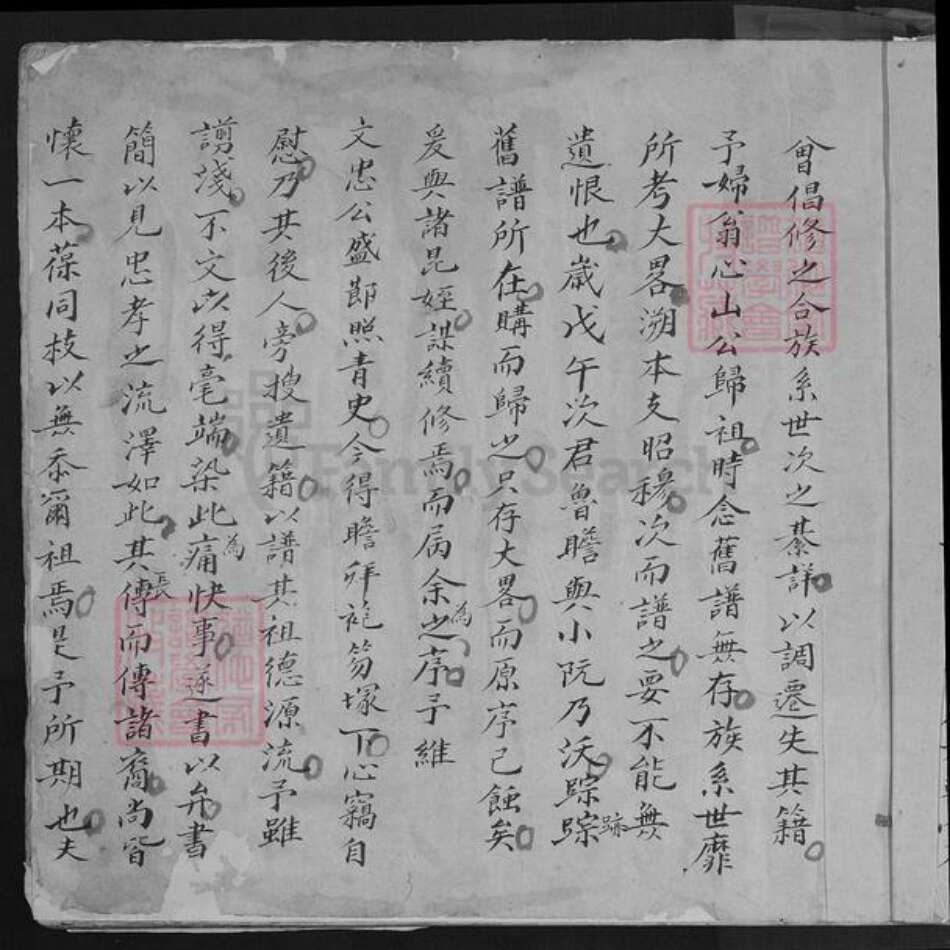 曾倡修之合族系世次之綦詳以調遷失其籍
予婦翁心山公歸祖時念舊譜無存族系世靡
所考大畧溯本支昭穆次而譜之要不能無
遺恨也歲戊午次君魯瞻與小阮乃沃踪踪跡
舊譜所在購而歸之只存大畧而原序已蝕矣
爰與諸昆姪謀續修焉而属余為之序予維
文忠公盛節照青史今得瞻拜袍笏塚下心竊自
慰乃其後人旁搜遺籍以譜其祖德源流予雖
謭淺不文以得毫端染此為痛快事遂書以弁書
簡以見忠孝之流澤如此其長傳而傳諸裔尚皆
懷一本葆同枝以無忝爾祖焉是予所期也夫
FamilySearch